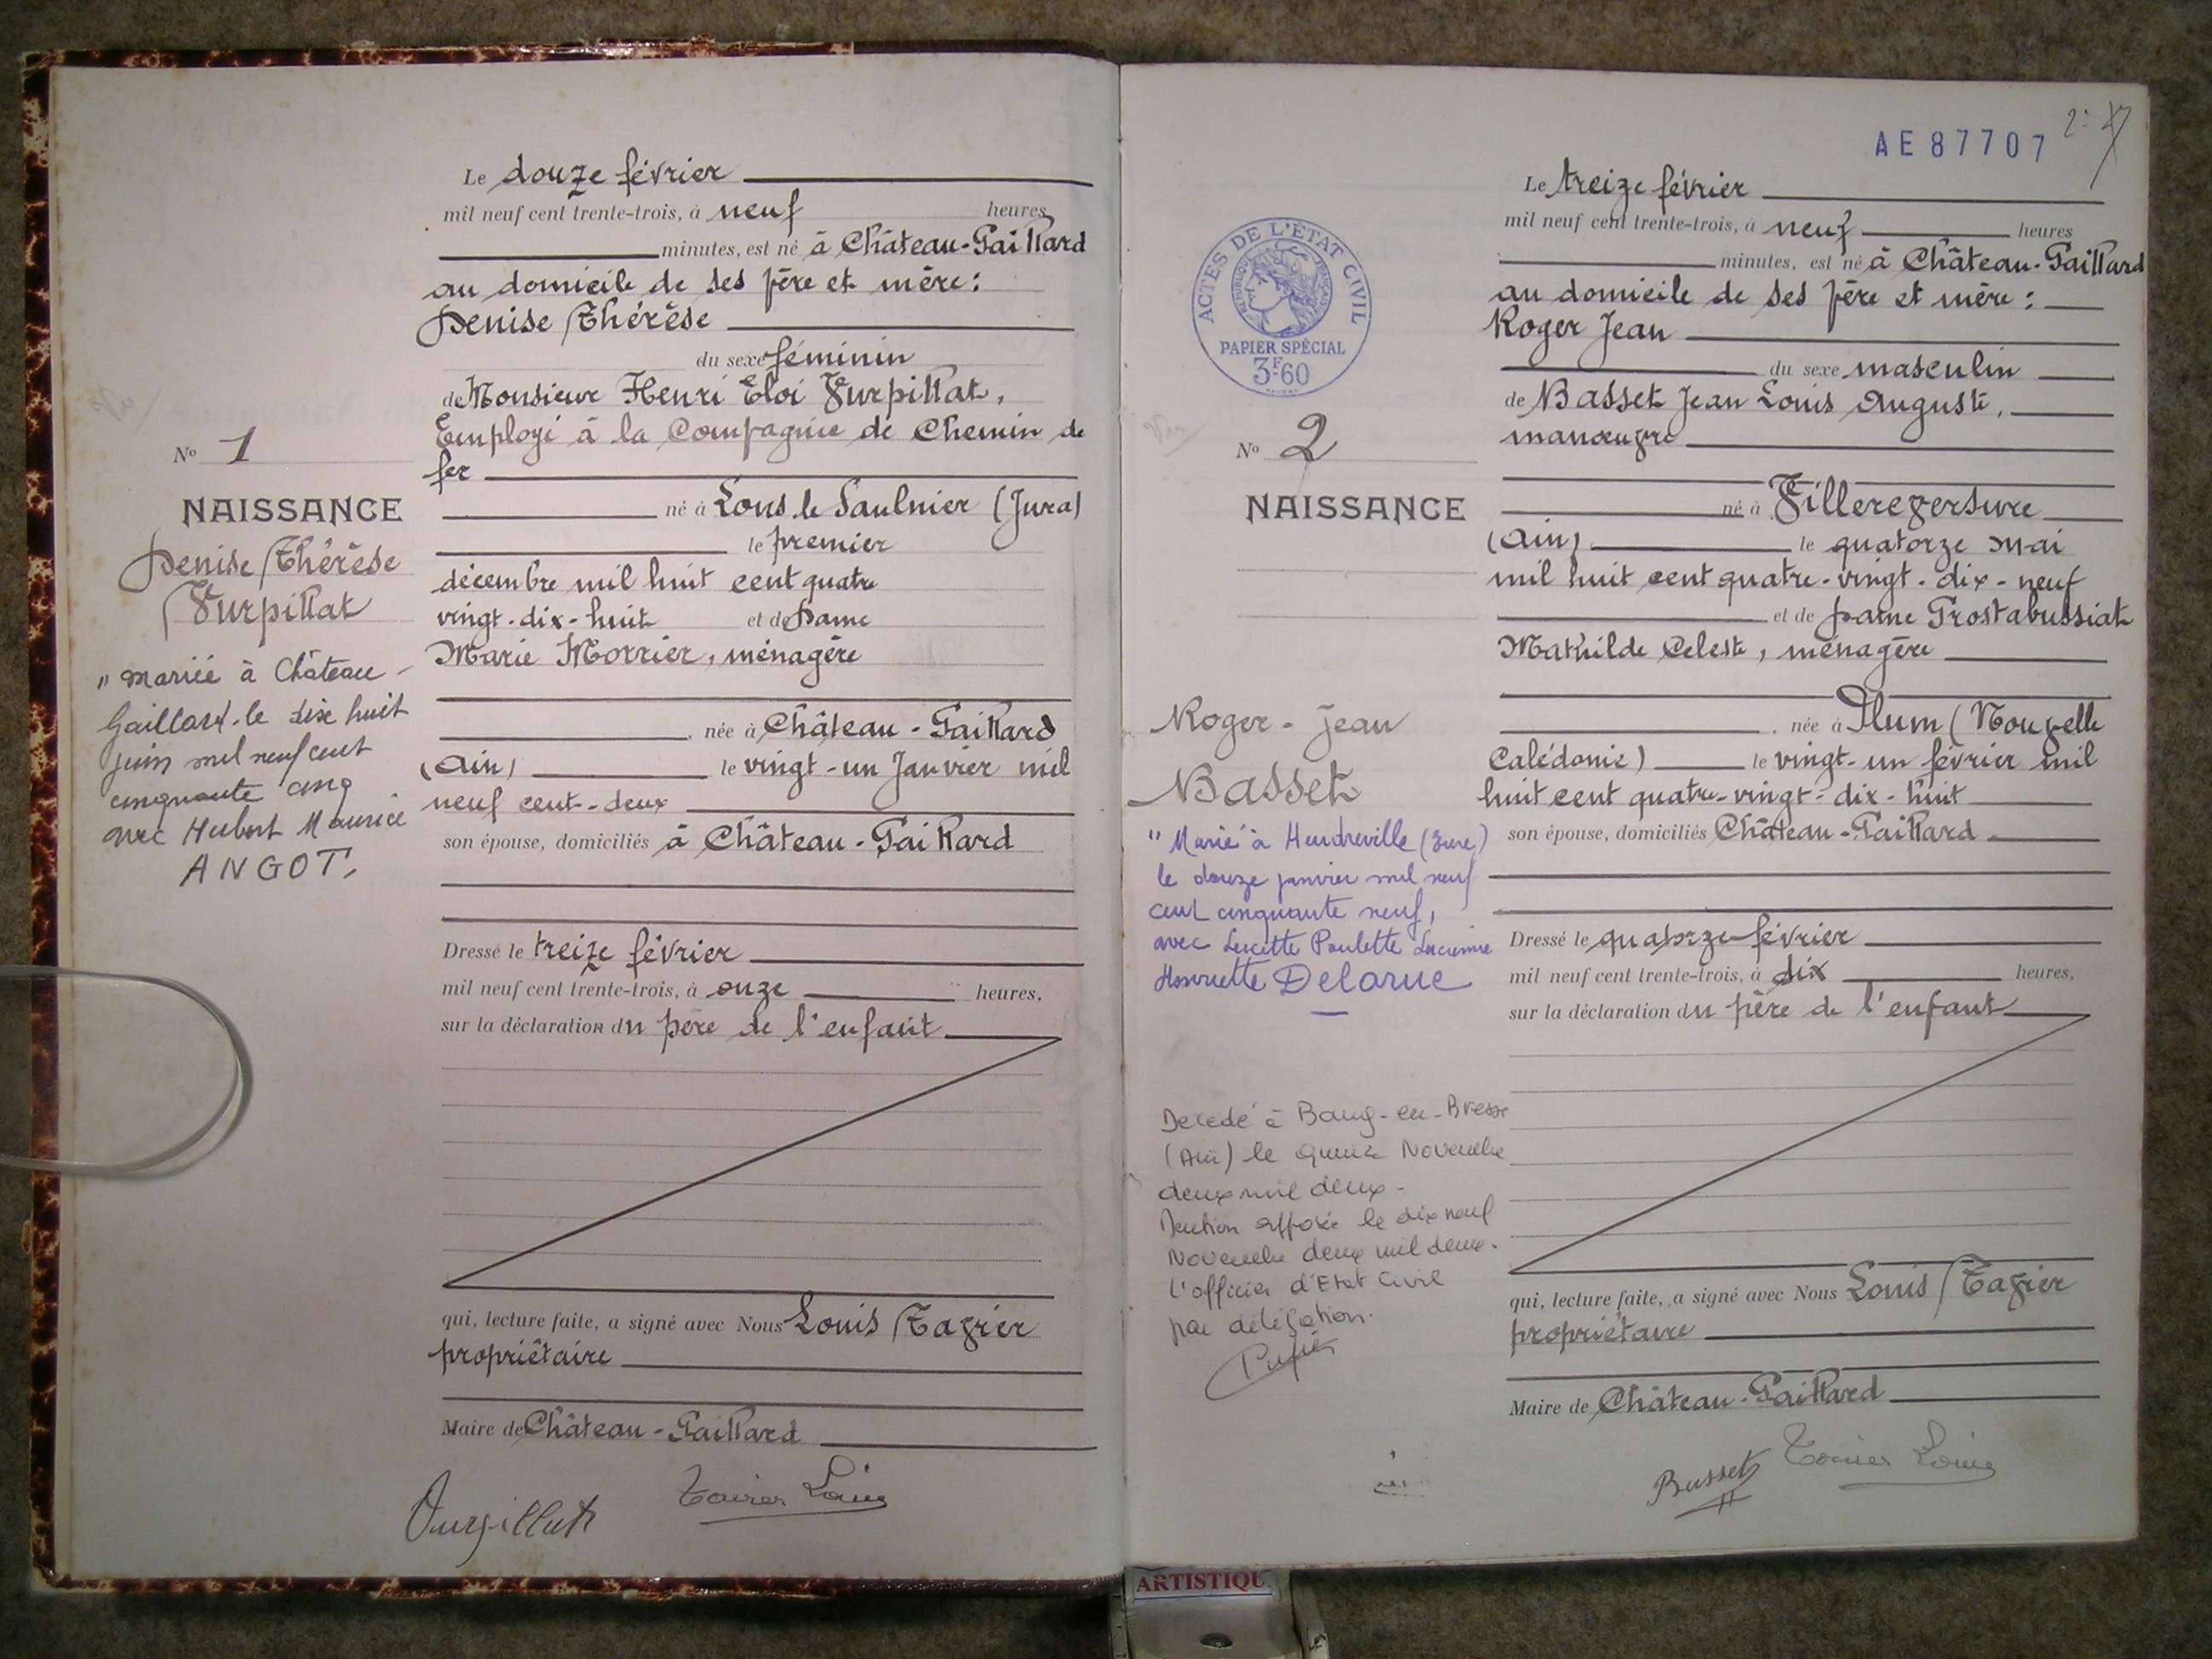 Le douze février
mil neuf cent trente-trois, à neuf heures
minutes, est né à Château-Gaillard
au domicile de ses père et mère :
Denise Thérèse
du sexe féminin
de Monsieur Henri Eloi Vurpillat,
Employé à la Compagnie de Chemin de
fer
né à Lons le Saulnier (Jura)
le premier
décembre mil huit cent quatre
vingt-dix-huit et de Dame
Marie Morrier, ménagère
née à Château-Gaillard
(Ain) le vingt-un Janvier mil
neuf cent-deux
son épouse, domiciliés à Château-Gaillard
Dressé le treize février
mil neuf cent trente-trois, à onze heures,
sur la déclaration du père de l'enfant
qui, lecture faite, a signé avec Nous Louis Tavier
propriétaire
Maire de Château-Gaillard
Vurpillat
Tavier Louis
No 1
NAISSANCE
Denise Thérèse
Vurpillat
" Mariée à Château-
Gaillard le dix huit
juin mil neuf cent
cinquante cinq
avec Hubert Maurice
ANGOT.
AE 87707
ACTES DE L'ÉTAT CIVIL
RÉPUBLIQUE FRANÇAISE
PAPIER SPÉCIAL
3F60
No 2
NAISSANCE
Roger-Jean
Basset
" Marié à (Eure)
le douze janvier mil neuf
cent cinquante neuf,
avec Lucette Paulette Lucienne
Henriette Delarue
Décédé à Bourg-en-Bresse
(Ain) le quinze Novembre
deux mil deux -
Mention apposée le dix neuf
Novembre deux mil deux.
L'officier d'Etat Civil
par délégation.
Le treize février
mil neuf cent trente-trois, à neuf heures
minutes, est né à Château-Gaillard
au domicile de ses père et mère :
Roger Jean
du sexe masculin
de Basset Jean Louis Auguste,
manœuvre
né à Villereversure
(Ain) le quatorze mai
mil huit cent quatre-vingt-dix-neuf
et de Dame Grostabussiat
Mathilde Celeste, ménagère
née à Plum (Nouvelle
Calédonie) le vingt-un février mil
huit cent quatre-vingt-dix-huit
son épouse, domiciliés Château-Gaillard
Dressé le quatorze février
mil neuf cent trente-trois, à dix heures,
sur la déclaration du père de l'enfant
qui, lecture faite, a signé avec Nous Louis Tavier
propriétaire
Maire de Château-Gaillard
Basset
Tavier Louis
ARTISTIQU